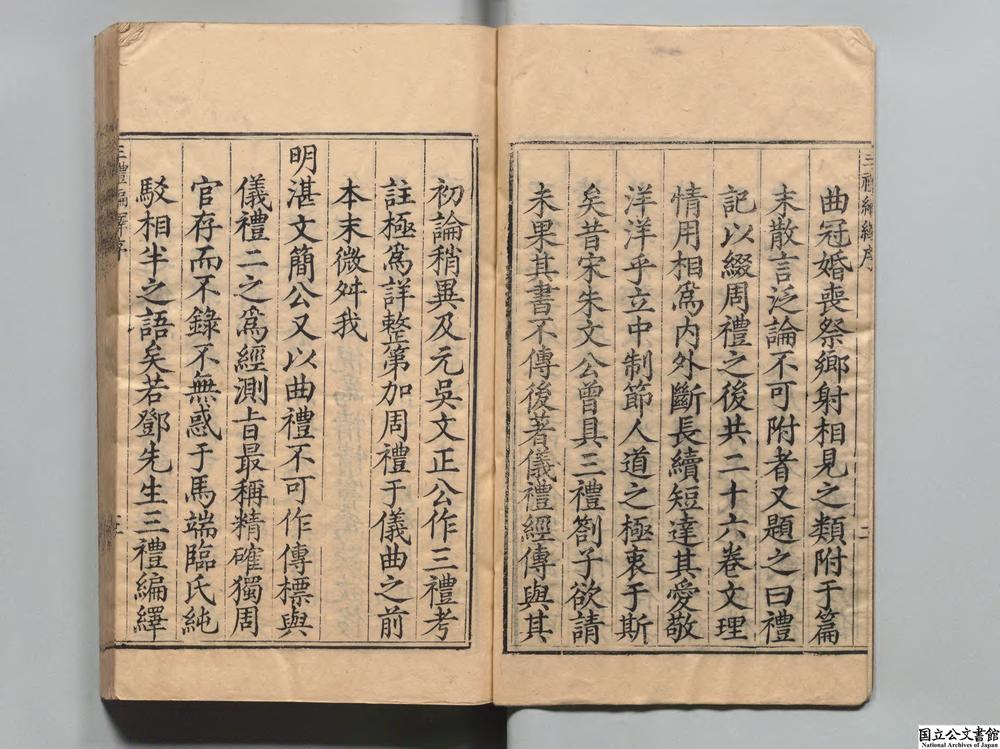 曲冠婚喪祭鄉射相見之類附于篇
末散言泛論不可附者又題之曰禮
記以綴周禮之後共二十六卷文理
情用相爲內外斷長續短達其愛敬
洋洋乎立中制節人道之極衷于斯
矣昔宋朱文公曾具三禮劄子欲請
未果其書不傳後著儀禮經傳與其
初論稍異及元吳文正公作三禮考
註極爲詳整第加周禮于儀曲之前
本末微舛我
明湛文簡公又以曲禮不可作傳標與
儀禮二之爲經測旨最稱精確獨周
官存而不錄不無惑于馬端臨氏純
駁相半之語矣若鄧先生三禮編繹
国立公文書館
National Archives of Japan